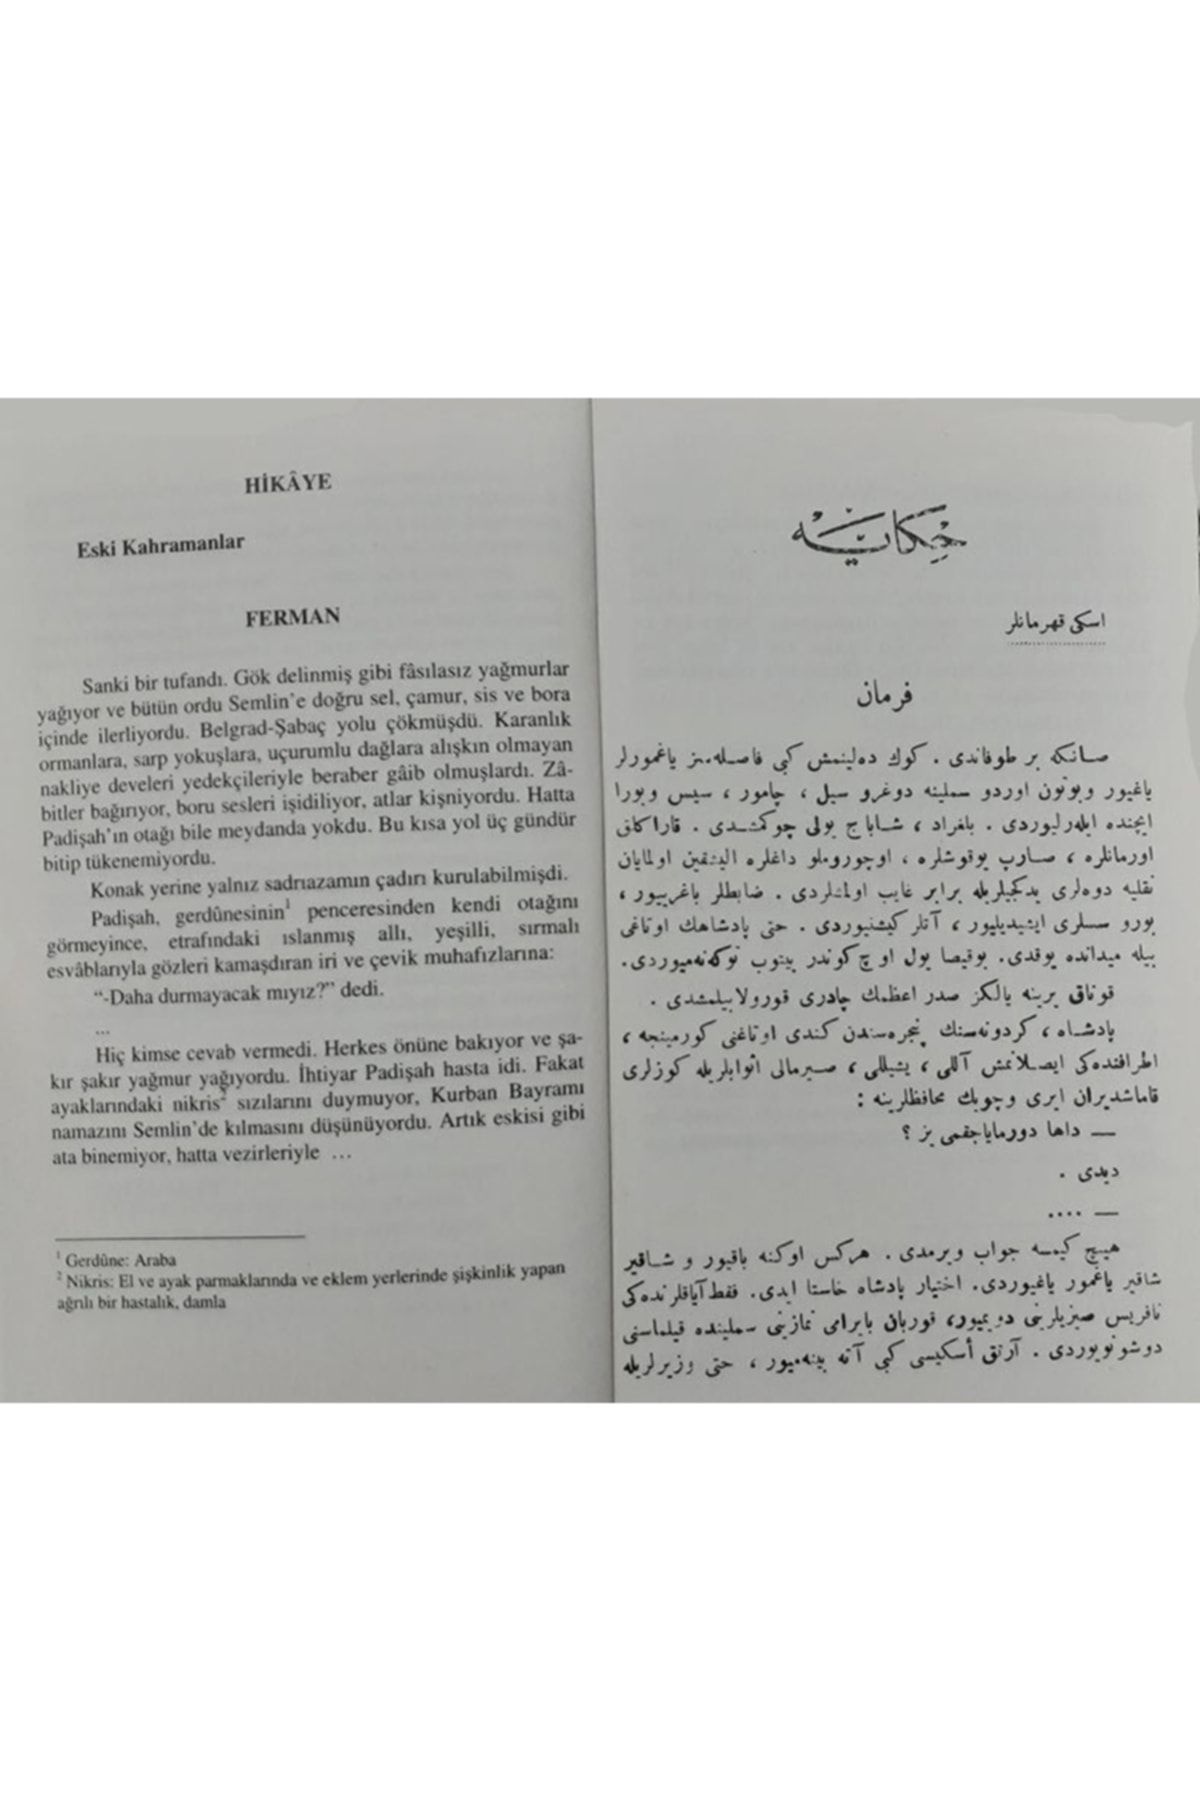 HİKÂYE
Eski Kahramanlar
FERMAN
Sanki bir tufandı. Gök delinmiş gibi fâsılasız yağmurlar
yağıyor ve bütün ordu Semlin'e doğru sel, çamur, sis ve bora
içinde ilerliyordu. Belgrad-Şabaç yolu çökmüşdü. Karanlık
ormanlara, sarp yokuşlara, uçurumlu dağlara alışkın olmayan
nakliye develeri yedekçileriyle beraber gâib olmuşlardı. Zâ-
bitler bağırıyor, boru sesleri işidiliyor, atlar kişniyordu. Hatta
Padişah'ın otağı bile meydanda yokdu. Bu kısa yol üç gündür
bitip tükenemiyordu.
Konak yerine yalnız sadrıazamın çadırı kurulabilmişdi.
Padişah, gerdûnesinin¹ penceresinden kendi otağını
görmeyince, etrafındaki ıslanmış allı, yeşilli, sırmalı
esvâblarıyla gözleri kamaşdıran iri ve çevik muhafızlarına:
“-Daha durmayacak mıyız?” dedi.
...
Hiç kimse cevab vermedi. Herkes önüne bakıyor ve şa-
kır şakır yağmur yağıyordu. İhtiyar Padişah hasta idi. Fakat
ayaklarındaki nikris² sızılarını duymuyor, Kurban Bayramı
namazını Semlin'de kılmasını düşünüyordu. Artık eskisi gibi
ata binemiyor, hatta vezirleriyle ...
¹ Gerdûne: Araba
² Nikris: El ve ayak parmaklarında ve eklem yerlerinde şişkinlik yapan
ağrılı bir hastalık, damla
حكايه
اسكی قهرمانلر
فرمان
صانكه بر طوفاندی . كوك ده‌لینمش كبی فاصله‌سز یاغمورلر
یاغیور وبوتون اوردو سملینه دوغرو سیل ، چامور ، سیس وبورا
ایچنده ایله‌رلیوردی . بلغراد ، شاباج یولی چوكمشدی . قاراكلق
اورمانلره ، صارپ یوقوشلره ، اوچوروملو داغلره الیشقین اولمایان
نقلیه دوه‌لری یدكجیلریله برابر غایب اولمشلردی . ضابطلر باغرییور ،
بورو سسلری ایشیدیلیور ، آتلر كیشنیوردی . حتی پادشاهك اوتاغی
بیله میدانده یوقدی. بوقیصا یول اوچ كوندر بیتوب توكه‌نه‌میوردی.
قوناق یرینه یالكز صدر اعظمك چادری قورولابیلمشدی .
پادشاه ، كردونه‌سنك پنجره‌سندن كندی اوتاغنی كورمینجه ،
اطرافنده‌كی ایصلانمش آللی ، یشیللی ، صیرمالی اثوابلریله كوزلری
قاماشدیران ایری وچویك محافظلرینه :
— داها دورمایاجقمی یز ؟
دیدی .
— ....
هیچ كیمسه جواب ویرمدی . هركس اوكنه باقیور و شاقیر
شاقیر یاغمور یاغیوردی. اختیار پادشاه خاستا ایدی. فقط آیاقلرنده‌كی
نافریس صیزیلرینی دویمیور، قوربان بایرامی نمازینی سملینده قیلماسنی
دوشونویوردی . آرتق أسكیسی كبی آته بینه‌میور ، حتی وزیرلریله